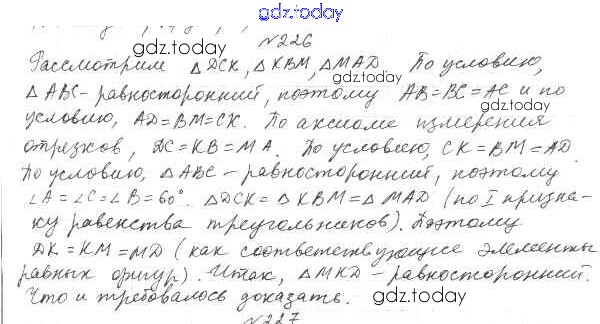 gdz.today
№226 gdz.today
Рассмотрим △DCK, △KBM, △MAD. По условию,
△ABC - равносторонний, поэтому AB=BC=AC и по
gdz.today
условию, AD=BM=CK. По аксиоме измерения
отрезков, DC=KB=MA. По условию, CK=BM=AD.
gdz.today
По условию, △ABC - равносторонний, поэтому
∠A=∠C=∠B=60°. △DCK=△KBM=△MAD (по I призна-
gdz.today
ку равенства треугольников). Поэтому
DK=KM=MD (как соответствующие элементы
равных фигур). Итак, △MKD - равносторонний.
Что и требовалось доказать.
gdz.today
№227